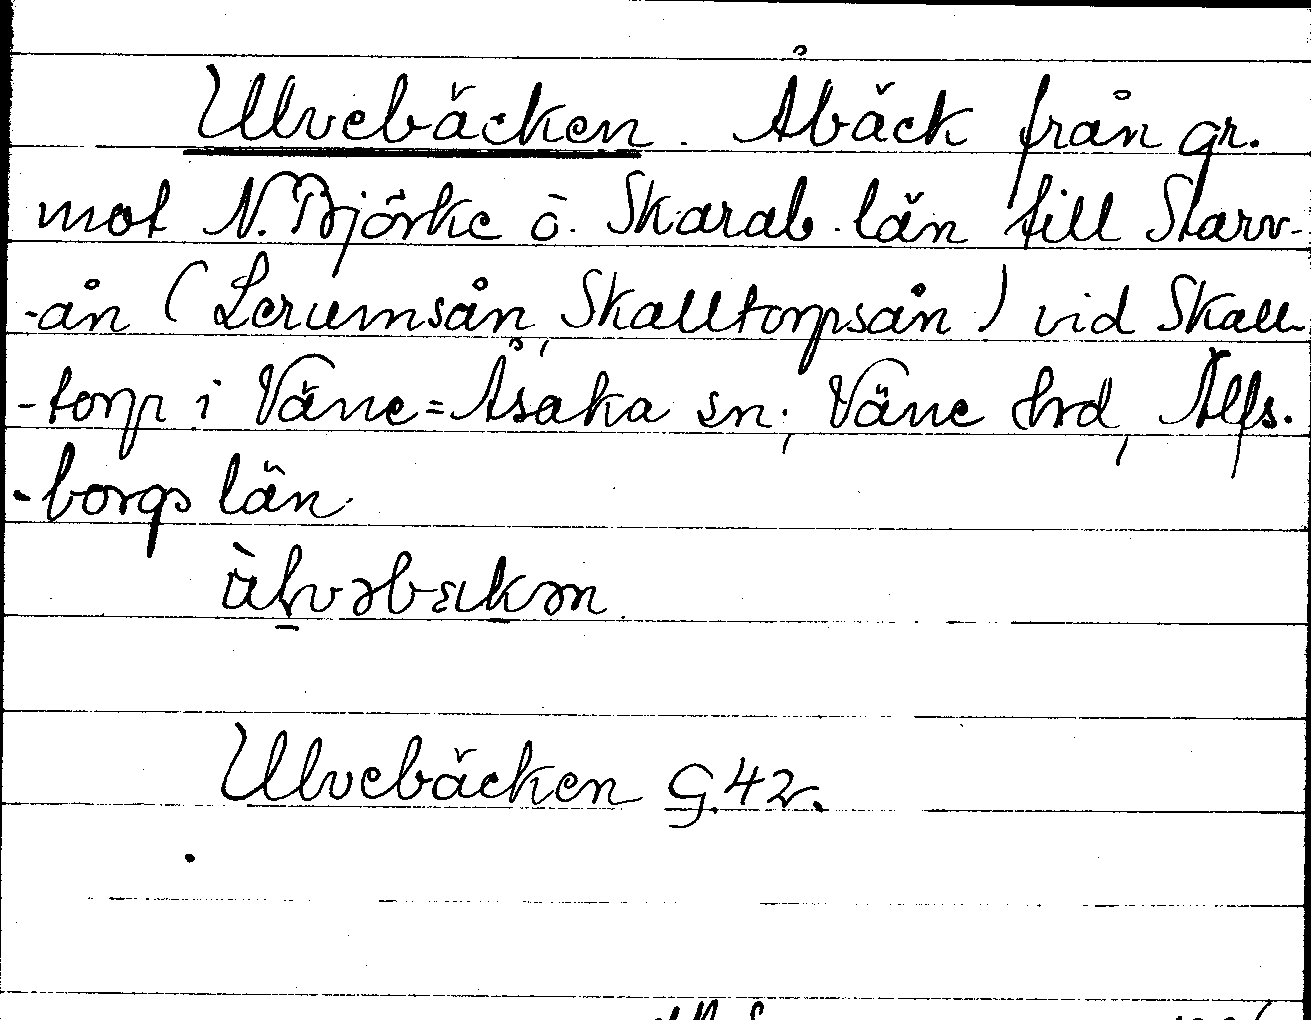 Ulvebäcken. Åbäck från gr.
mot N. Björke o. Skarab. län till Starv-
-ån (Lerumsån, Skalltorpsån) vid Skall
-torp i Väne=Åsaka sn; Väne hrd, Älfs.
-borgs län
Ulvebäcken G.42.